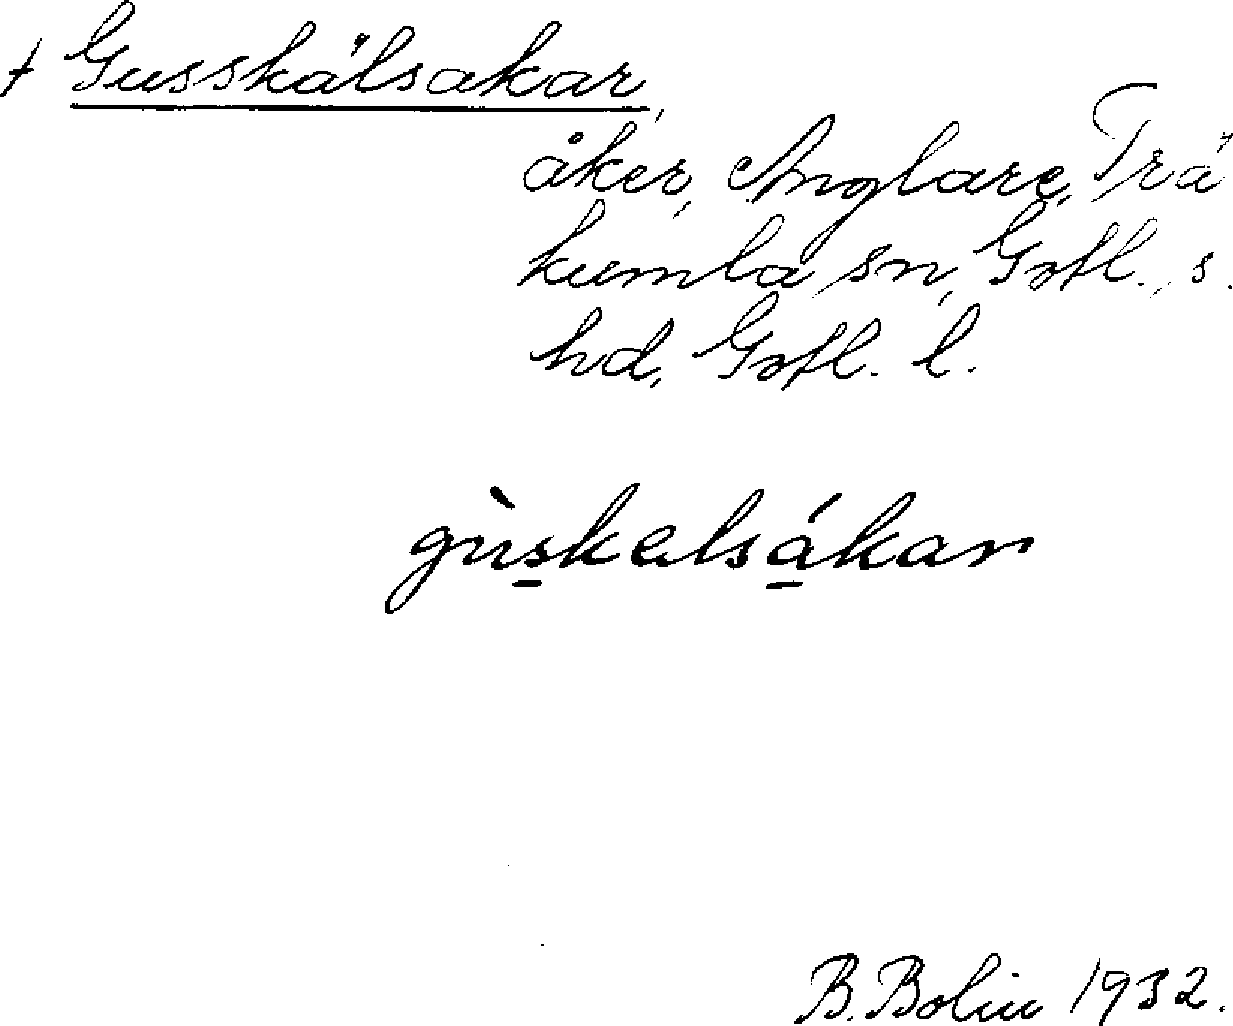 † Gusskälsakar,
åker, Anglare, Trä
kumla sn, Gotl., s.
hd, Gotl. l.
gùskalsákar
B. Bolin 1932.